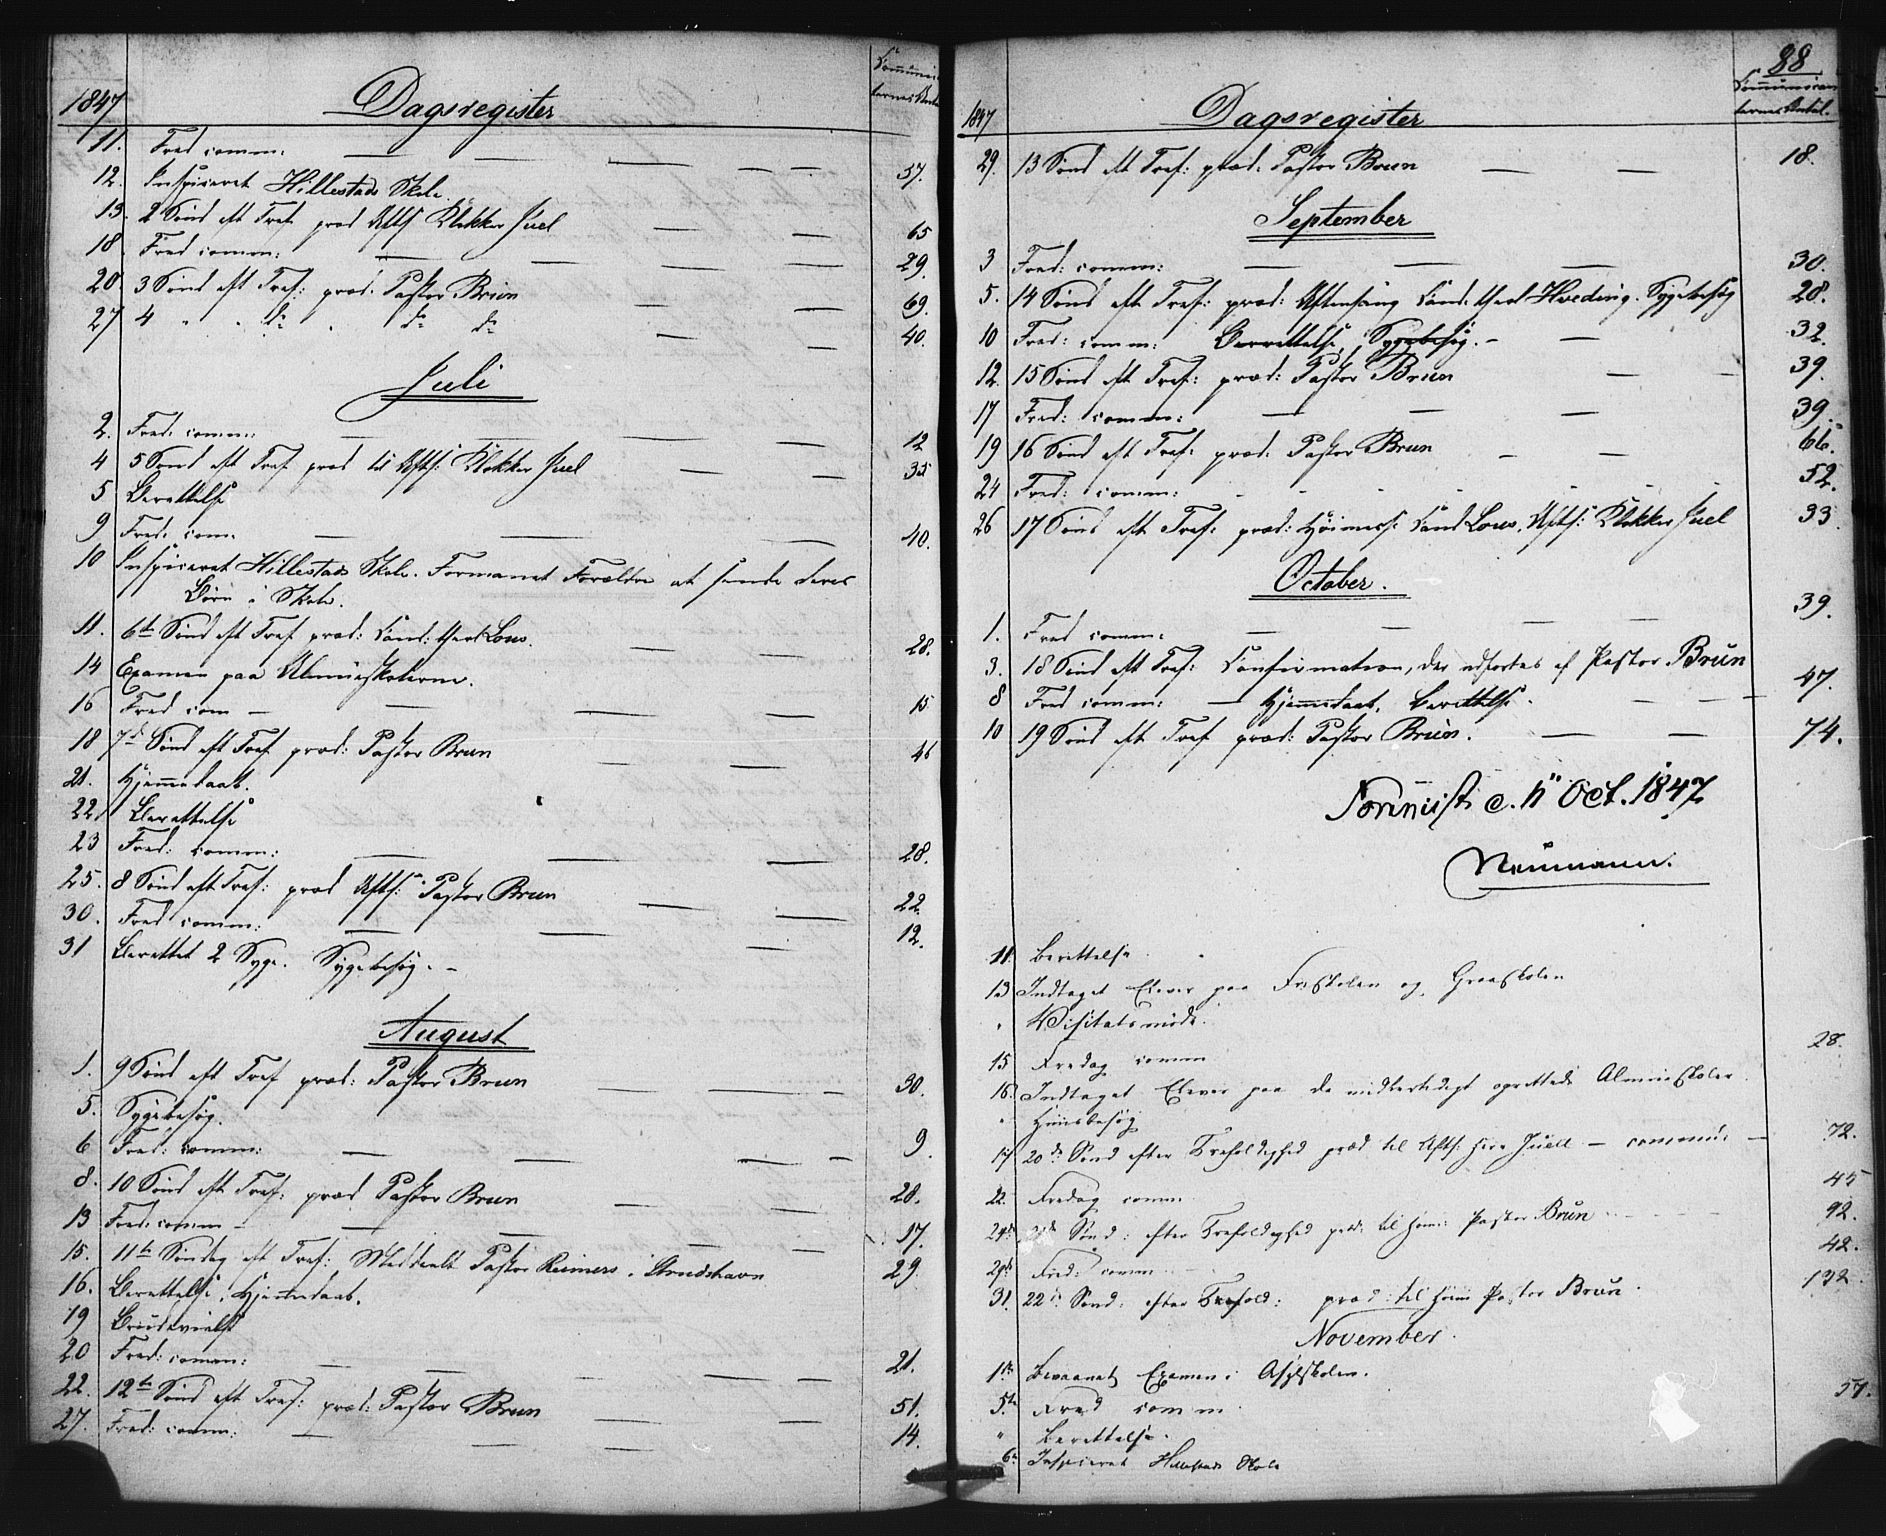 1847 Dagsregister Communicanternes Antal
11. Fred comm: 37.
12. Inspiceret Hillestads Skole.
13. 2 Sønd eft Tref præd Afts Klokker Juel 65
18. Fred comm: 29.
20. 3 Sønd eft Tref: præd. Pastor Brun 69.
27 4 " " do . do do 40.
Juli
2. Fred: comm: 12
4 5 Sønd eft Tref præd til Afts: Klokker Juel 35
5 Berettelse
9 Fred: com: 40.
10 Inspiceret Hillestads Skole. Formanet Forældre at sende deres
Børn i Skole.
11. 6te Sønd eft Tref præd: Cand: theol Lous. 28.
14 Examen paa Almueskolerne.
16 Fred com 15
18 7de Sønd eft Tref præd: Pastor Brun 46
21. Hjemmedaab.
22. Berettelse
23 Fred: comm: 28.
25. 8 Sønd eft Tref: præd Afts: Pastor Brun 22.
30. Fred comm: 12.
31 Berettet 2 Syge. Sygebesøg.
August
1. 9 Sønd eft Tref præd: Pastor Brun 30.
5. Sygebesøg.
6 Fred: comm: 9.
8. 10 Sønd eft Tref: præd Pastor Brun 28.
13 Fred: comm 17.
15. 11te Søndag eft Tref: Meddeelt Pastor Reimers i 29.
16. Berettelse, Hjemmedaab.
19 Brudevielse
20 Fred: comm: 21.
22. 12te Sønd eft Tref: præd: Pastor Brun 51.
27. Fred: comm: 14.
88
1847 Dagsregister Communicanternes Antal.
29. 13 Sønd eft Tref: præd: Pastor Brun 18.
September
3 Fred: comm: 30.
5. 14 Sønd eft Tref: præd: Aftensang Cand: theol Hveding. Sygebesøg 28.
10 Fred: comm: Berettelse, Sygebesøg. 32.
12. 15 Sønd eft Tref: præd: Pastor Brun 39.
17 Fred: comm: 39.
19 16 Sønd eft Tref: præd: Pastor Brun 66.
24 Fred: comm: 52.
26 17 Sønd eft Tref: præd: Høimesse Cand Lous, Afts: Klokker Juel 33.
October.
1. Fred comm: 39.
3. 18 Sønd eft Tref: Confirmation, der udførtes af Pastor Brun
8 Fred comm: Hjemmedaab. Berettelse. 47.
10 19 Sønd eft Tref præd: Pastor Brun. 74.
Forevüst d. 11 Oct. 1847
Neumann.
11. Berettelse
13 Indtaget Elever paa Friskolen og Graaskolen
" Visitatsmøde.
15 Fredag comm 28.
16. Indtaget Elever paa de midlertidigt oprettede Almueskoler
" Huusbesøg
17 20de Sønd efter Trefoldighed præd til Afts: Herr Juell — communi: 72.
22. Fredag comm 45
24de 21de Sønd: efter Trefoldighed præd: til Høim: Pastor Brun 92.
29de Fred: comm 42.
31. 22de Sønd: efter Trefold: præd: til Høim Pastor Brun. 132.
November.
1ste Bivaanet Examen i Asylskolen.
5te Fred comm 57.
" Berettelse.
6te Inspiceret Hillestads Skole